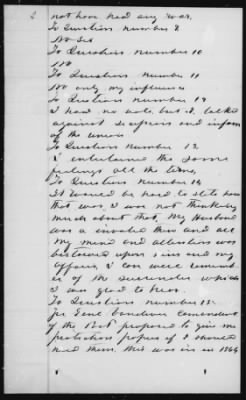 2 not have had any war.
To Question number 9
No Sir
To Question number 10
No
To Question number 11
No only my influence
To Question number 12
I had no vote, but I talked
against secession and in favor
of the union
To Question number 13
I entertained the same
feelings all the time,
To Question number 14
It would be hard to state how
that was, I was not thinking
much about that. My Husband
was a invalid then and all
my mind and attention was
bestowed upon him and my
affairs, I can well remember
of the surrender which
I was glad to hear.
To Question number 15.
Yes Genl commander
of the Post proposed to give me
protection papers if I should
need them, this was in 1864